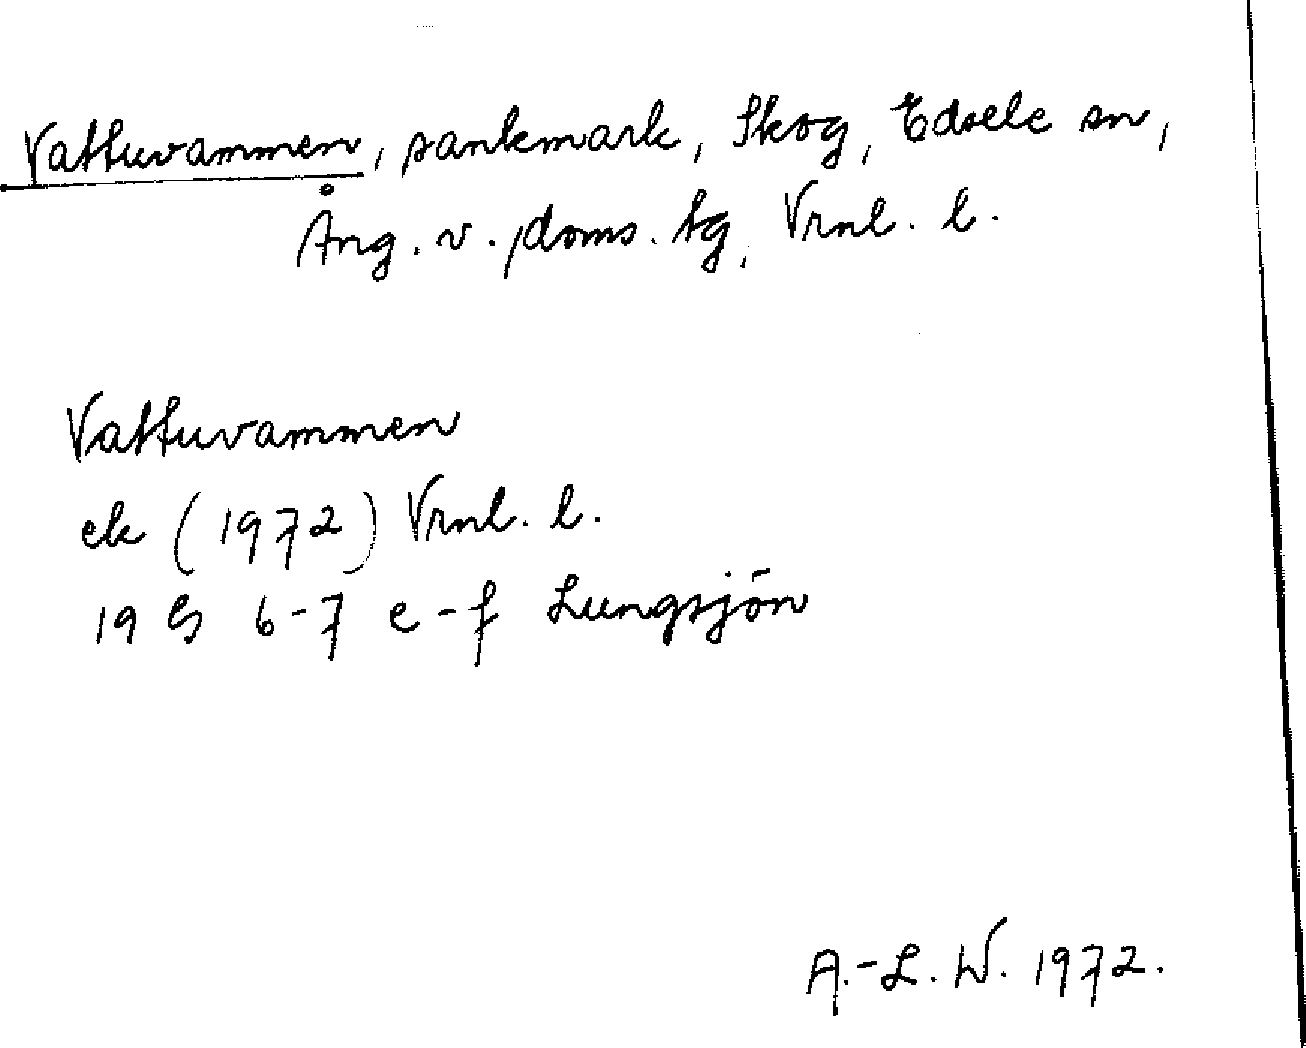 Vattuvammen, sankmark, Skog, Edsele sn,
Ång. v. doms. tg, Vrnl. l.
Vattuvammen
ek (1972) Vrnl. l.
19 G 6-7 e-f Lungsjön
A.-L. W. 1972.